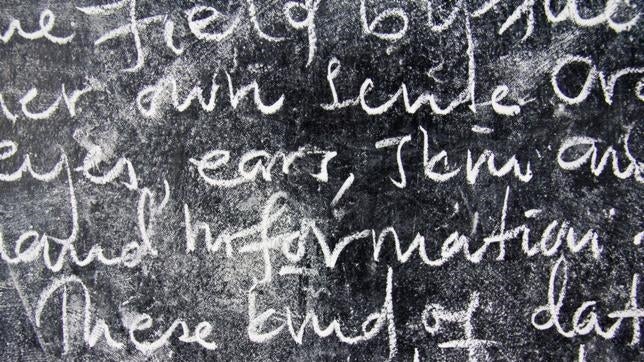 Field by
own sense
eyes, ears, skin and
hand information
These kind of dat